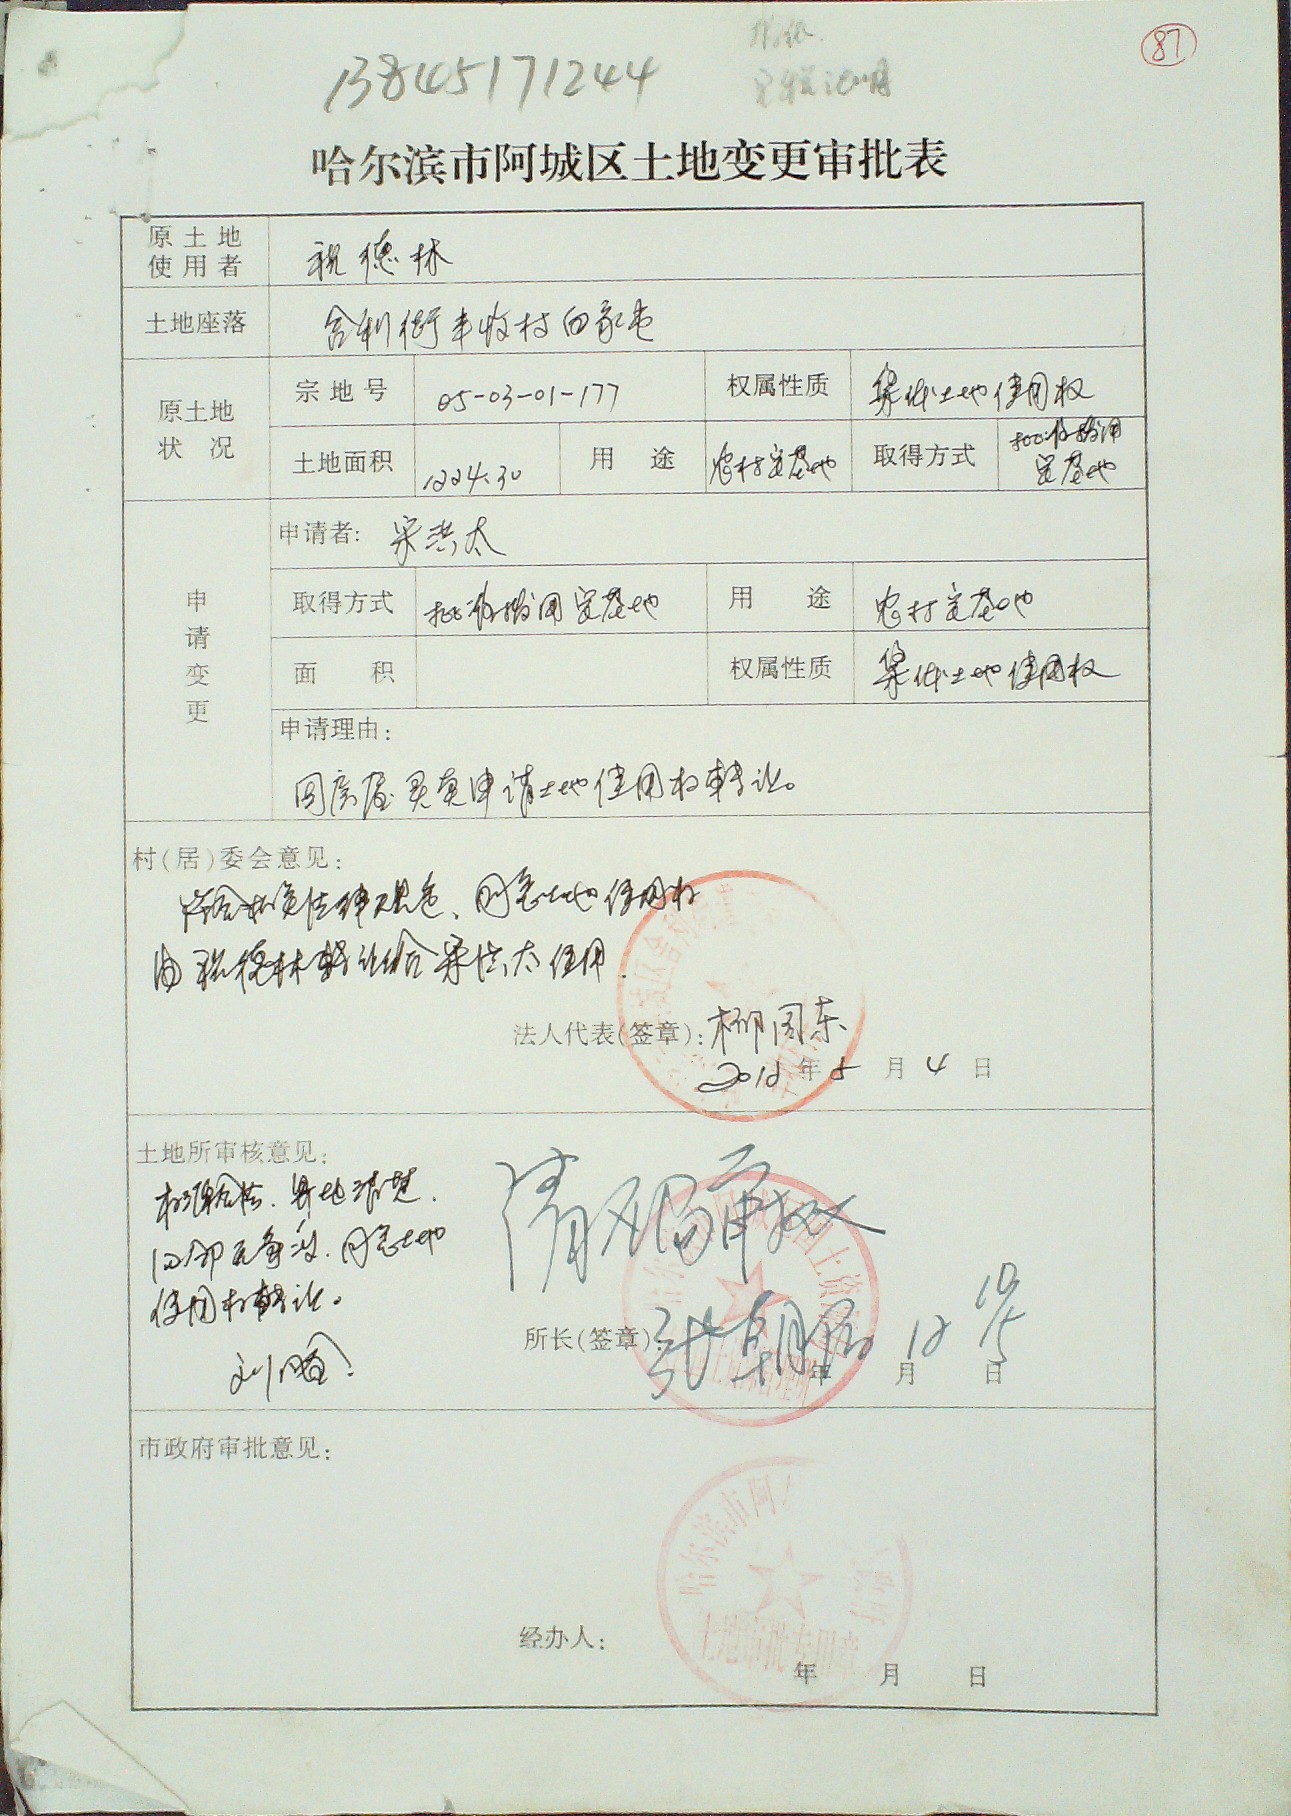 87
13845171244
哈尔滨市阿城区土地变更审批表
原土地使用者 祝德林
土地座落 舍利街丰收村白家屯
原土地状况 宗地号 05-03-01-177 权属性质 集体土地使用权
土地面积 1224.30 用途 农村宅基地 取得方式 批准拨用宅基地
申请变更
申请者: 宋洪太
取得方式 批准拨用宅基地 用途 农村宅基地
面积 权属性质 集体土地使用权
申请理由:
因房屋买卖申请土地使用权转让。
村(居)委会意见:
符合相关法律规定、同意土地使用权
由祝德林转让给宋洪太使用.
法人代表(签章): 柳国东
2012年5月4日
土地所审核意见:
权源合法.界地清楚.
四邻无争议.同意土地
使用权转让。
所长(签章):
年 月 日
市政府审批意见:
土地审批专用章
经办人:
年 月 日